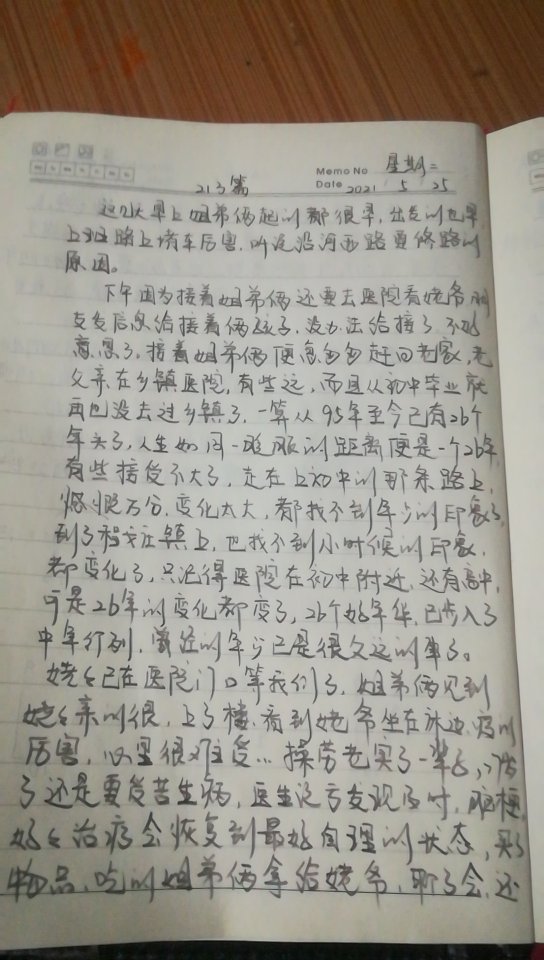 Memo No 星期二
Date 2021 5 25
213篇
这几天早上姐弟俩起的都很早,出发的也早
上班路上堵车厉害,听说沿河西路要修路的
原因。
下午因为接着姐弟俩还要去医院看姥爷,朋
友发信息给接着俩孩子,没办法给接了,不好
意思了,接着姐弟俩便急匆匆赶回老家,老
父亲在乡镇医院,有些远,而且从初中毕业就
再也没去过乡镇了,一算从95年至今已有26个
年头了,人生如同一眨眼的距离便是一个26年,
有些接受不大了,走在上初中的那条路上,
感慨万分,变化太大,都找不到年少的印象了,
到了程戈庄镇上,也找不到小时候的印象,
都变化了,只记得医院在初中附近,还有高中,
可是26年的变化都变了,26个好年华,已步入了
中年行列,曾经的年少已是很久远的事了。
姥姥已在医院门口等我们了,姐弟俩见到
姥姥亲的很,上了楼,看到姥爷坐在床边,瘦的
厉害,心里很难受…操劳老实了一辈子,
了还是要受苦生病,医生说亏发现及时,脑梗,
好好治疗会恢复到最好自理的状态,买了
物品,吃的姐弟俩拿给姥爷,聊了会,还